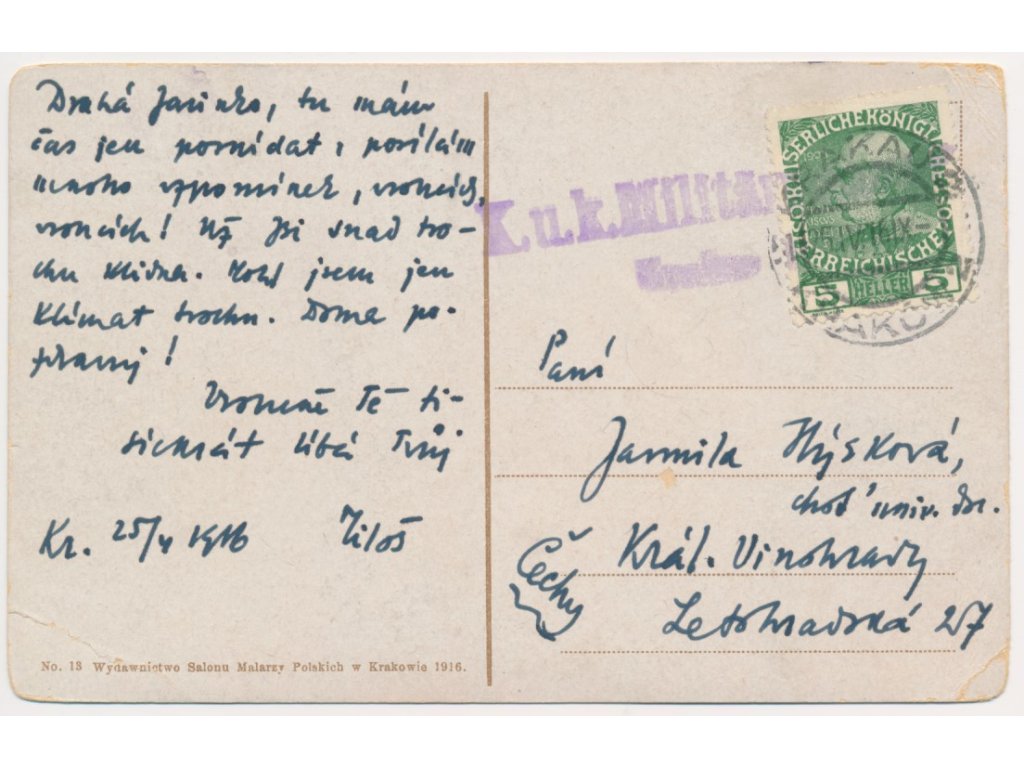 Drahá Jarinko, tu mám
čas jen posnídat, posílám
mnoho vzpomínek, vroucích,
vroucích! Už Jsi snad tro-
chu klidna. Měl jsem jen
klímat trochu. Doma po-
spravuj!
Vroucně Tě ti-
síckrát líbá Tvůj
Miloš
Kr. 25/4 1916
No. 13 Wydawnictwo Salonu Malarzy Polskich w Krakowie 1916.
K.u.k. Militär
KAISERLICHE KÖNIGLICHE ÖSTERREICHISCHE POST
5 HELLER 5
KRAKAU
KRAKÓW
Paní
Jarmila Hýsková,
choť univ. doc.
Král. Vinohrady
Letohradská 257
Čechy